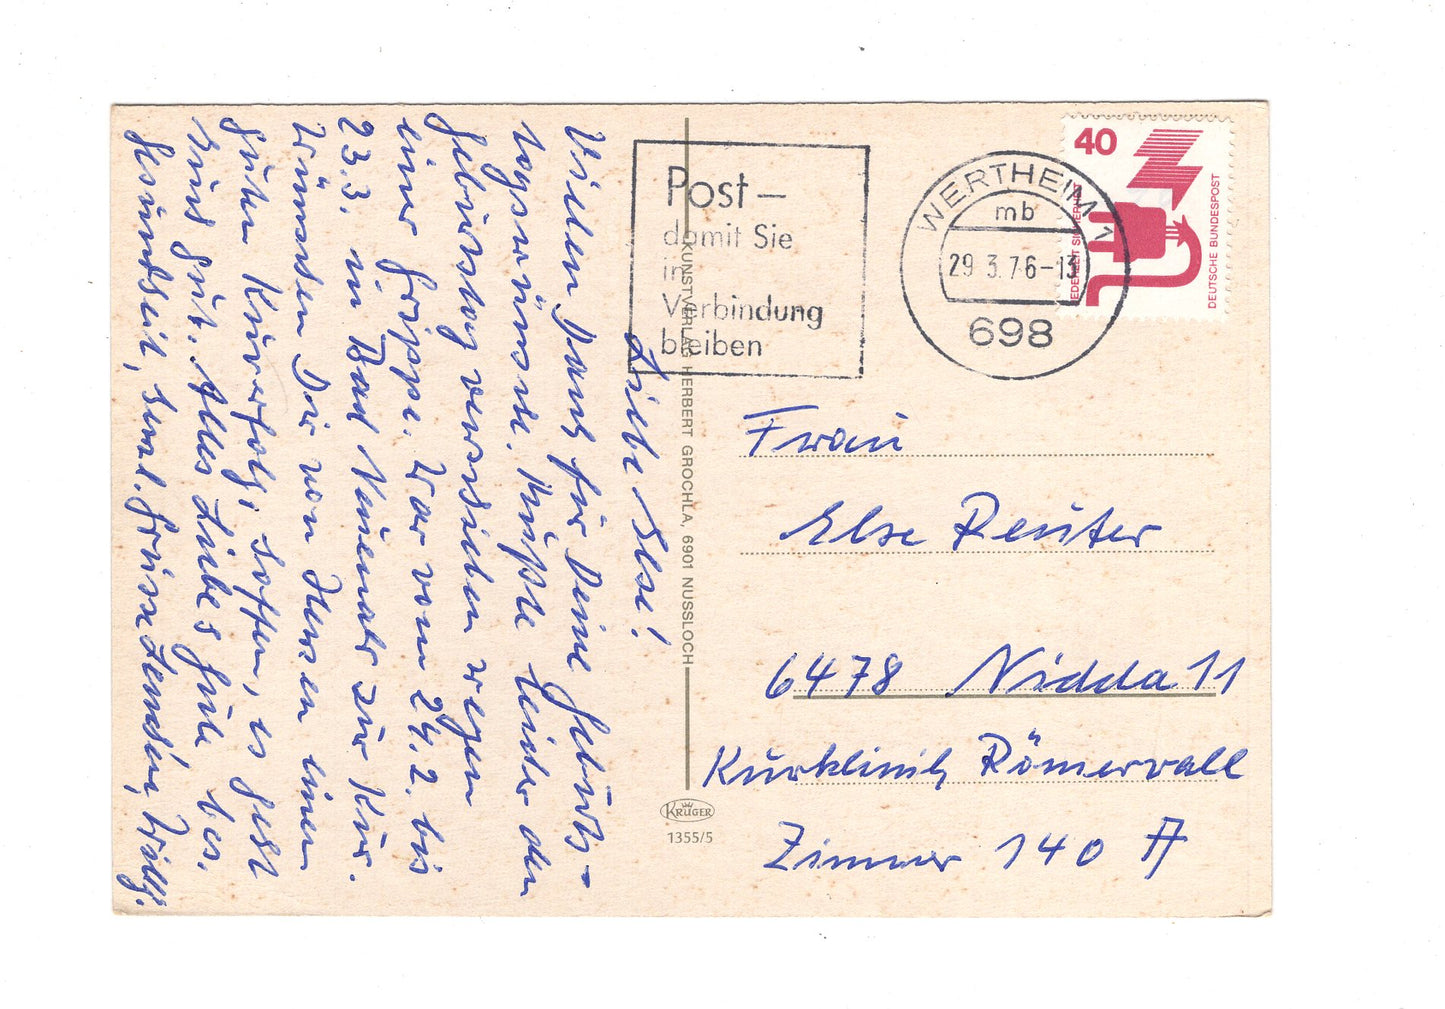 Liebe Else!
Vielen Dank für Deine Geburts-
tagswünsche. Mußte leider den
Geburtstag verschieben wegen
einer Grippe. War vom 24.2. bis
23.3. in Bad Nauenahr zur Kur.
Wünschen Dir von Herzen einen
guten Kurerfolg, hoffen, es geht
Dir gut. Alles Liebe & gute bes.
Gesundheit, herzl. Grüsse Willy.
Post –
damit Sie
in
Verbindung
bleiben
WERTHEIM 1
mb
29.3.76-13
698
40
JEDERZEIT SICHERHEIT
DEUTSCHE BUNDESPOST
KUNSTVERLAG HERBERT GROCHLA, 6901 NUSSLOCH
KRÜGER
1355/5
Frau
Else Reuter
6478 Nidda 11
Kurklinik Römerwall
Zimmer 140 A